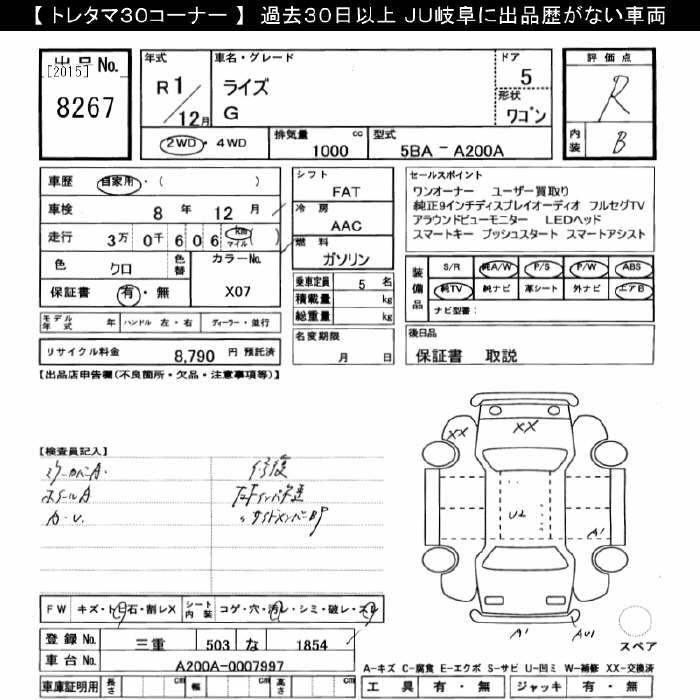 【 トレタマ30コーナー 】 過去30日以上 JU岐阜に出品歴がない車両
出品No.
[2015]
8267
年式
R1/12月
車名・グレード
ライズ
G
ドア
5
形状
ワゴン
評価点
R
内装
B
2WD・4WD
排気量 cc
1000
型式
5BA－A200A
車歴 自家用・( )
車検 8年 12月
走行 3万 0千 6 0 6 km マイル ( )
色 クロ
色替
カラーNo.
X07
保証書 有・無
シフト
FAT
冷房
AAC
燃料
ガソリン
乗車定員 5 名
積載量 kg
総重量 kg
セールスポイント
ワンオーナー ユーザー買取り
純正9インチディスプレイオーディオ フルセグTV
アラウンドビューモニター LEDヘッド
スマートキー プッシュスタート スマートアシスト
装備品
S/R 純A/W P/S P/W ABS
純TV 純ナビ 革シート 外ナビ エアB
ナビ型番:
モデル年式 年 ハンドル 左・右 ディーラー・並行
リサイクル料金 8,790 円 預託済
名変期限
月 日
後日品
保証書 取説
【出品店申告欄(不良箇所・欠品・注意事項等)】
【検査員記入】
ミラーカバーA.
ホイールA
修復
XX
XX
U2
A1
A1
AU1
FW キズ・ト石・割レX
シート内装 コゲ・穴・汚レ・シミ・破レ・スレ
登録No. 三重 503 な 1854
車台No. A200A-0007997
車庫証明用 長さ cm 幅 cm 高さ cm
スペア
A-キズ C-腐食 E-エクボ S-サビ U-凹ミ W-補修 XX-交換済
工具 有・無 ジャッキ 有・無